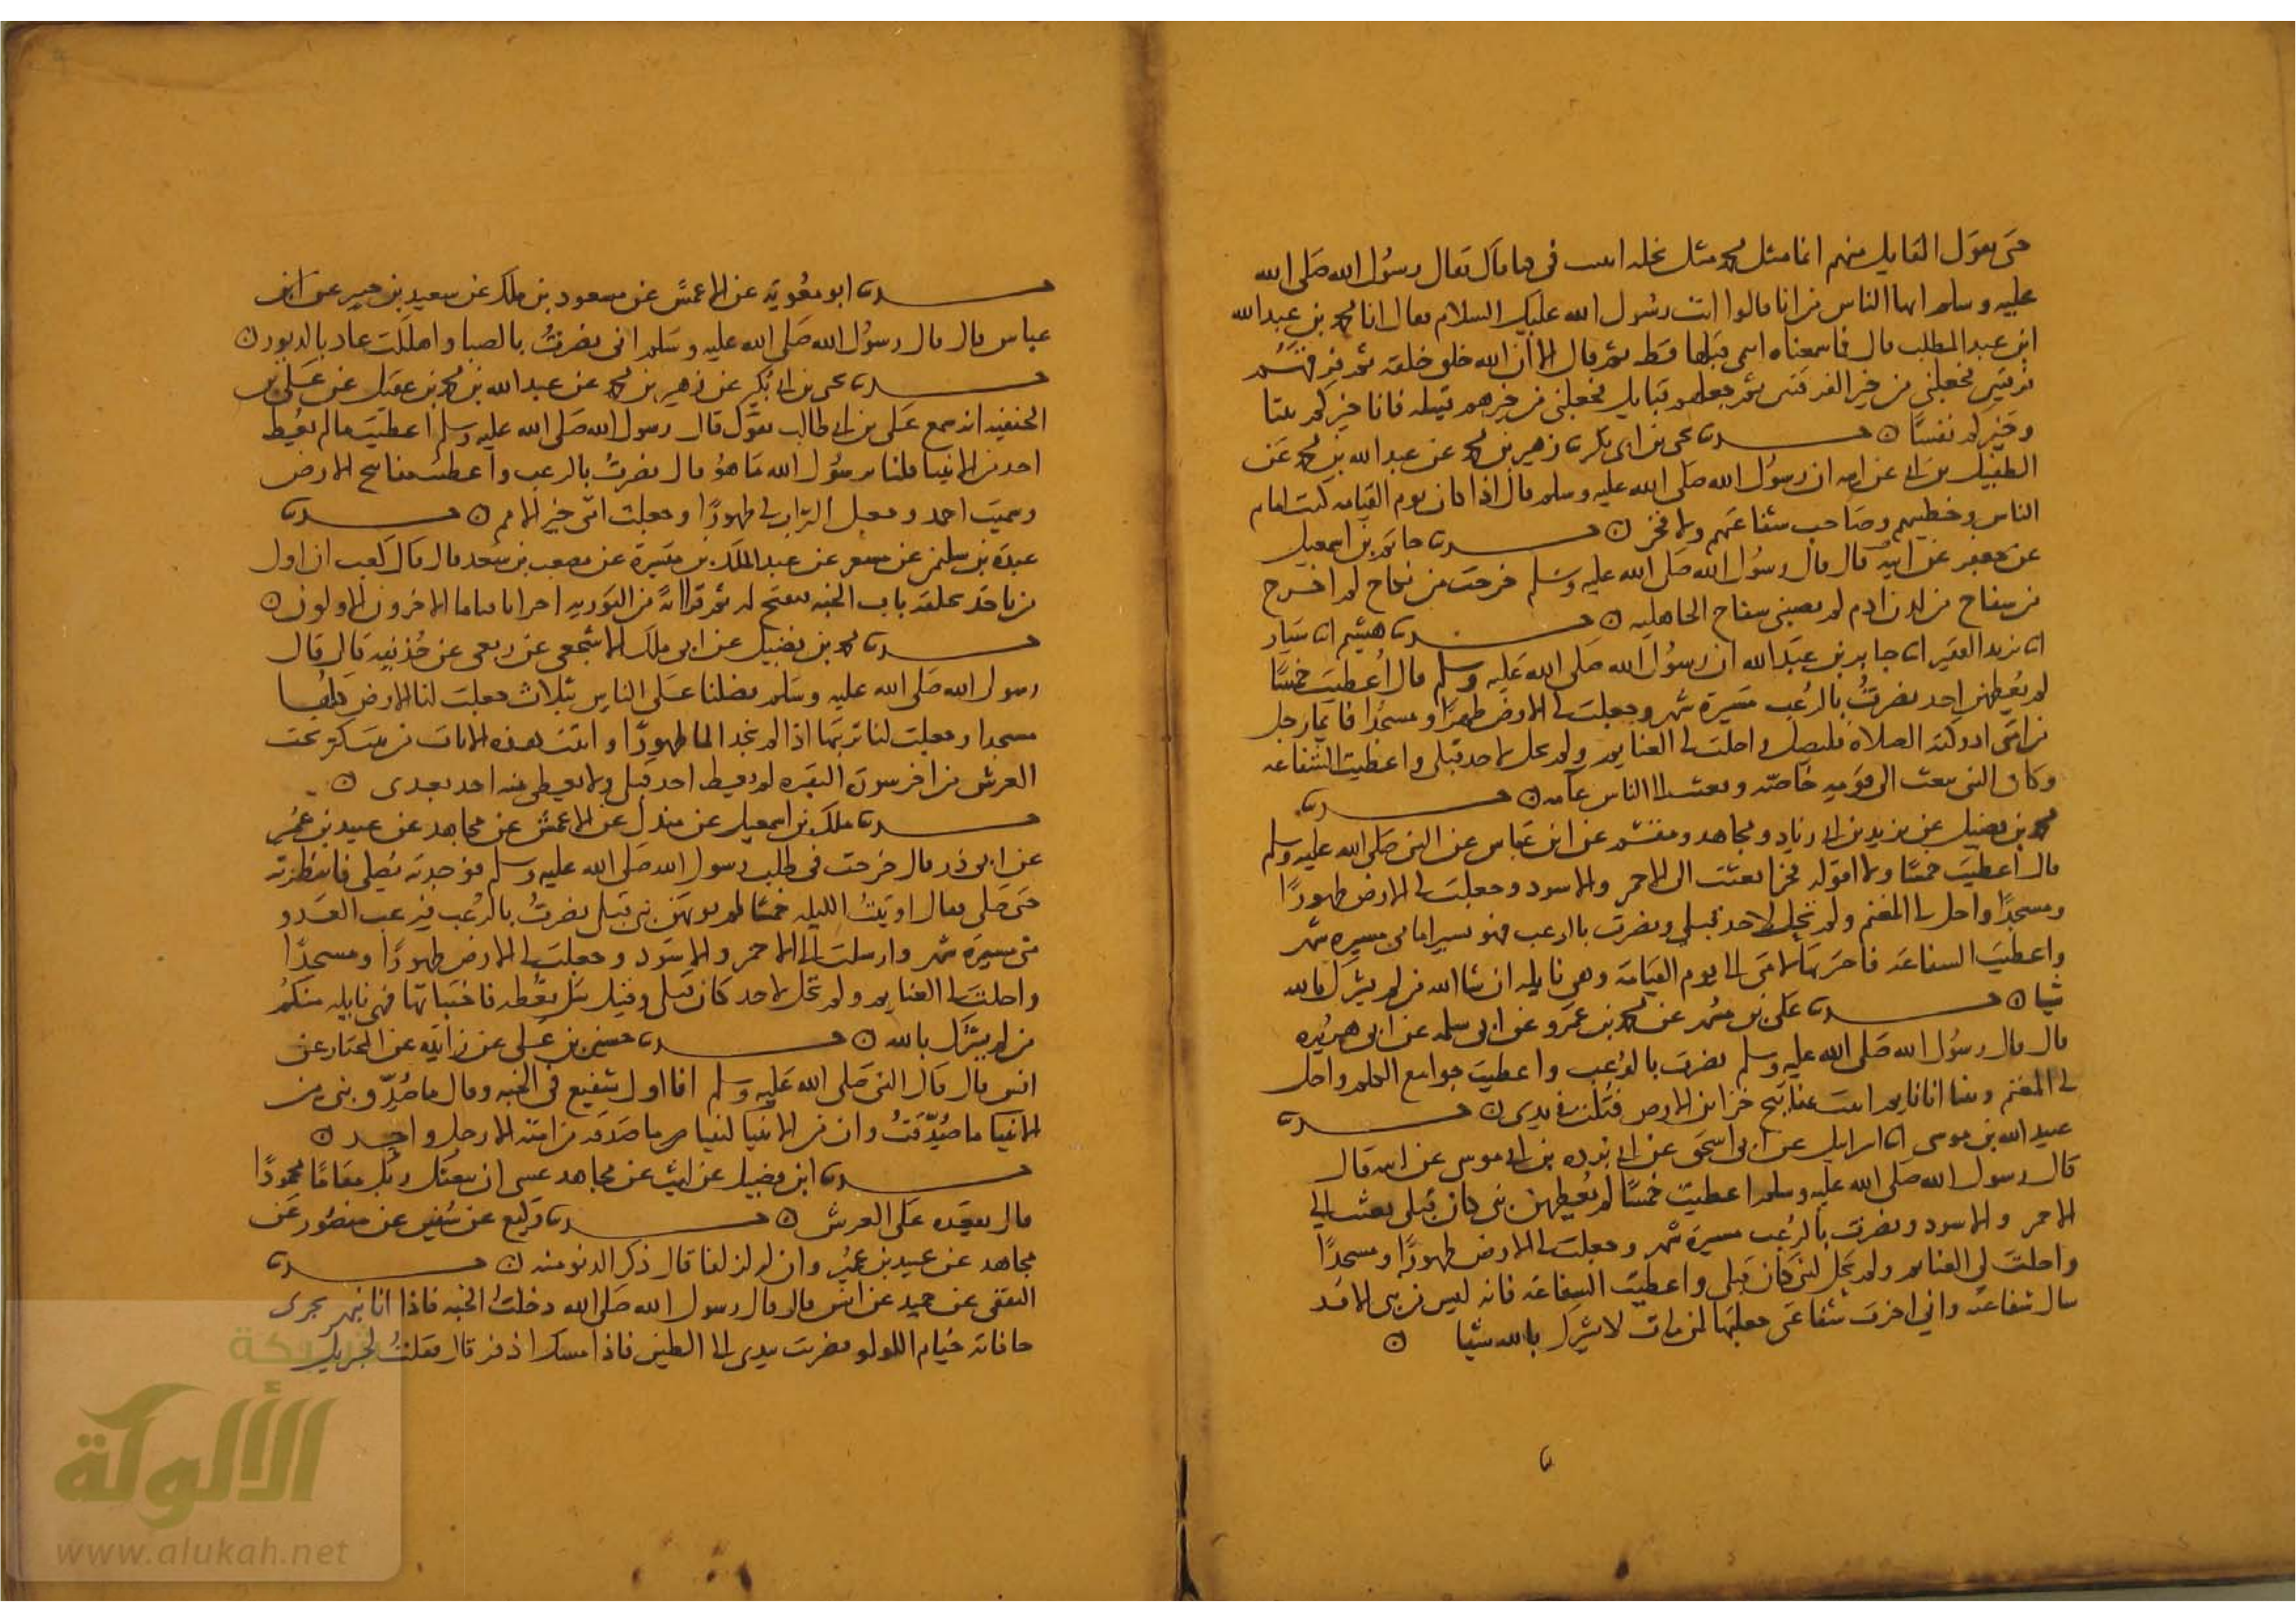 حتى يقول القايل منهم انما مثل محمد مثل نخله انبتت في كبا قال فقال رسول الله صلى الله
عليه وسلم ايها الناس من انا قالوا انت رسول الله عليك السلام فقال انا محمد بن عبدالله
ابن عبد المطلب قال فما سمعناه انتمى قبلها قط ثم قال الا ان الله خلق خلقه ثم فرقهم
فرقتين فجعلني من خير الفرقتين ثم جعلهم قبايل فجعلني من خيرهم قبيله فانا خيركم بيتا
وخيركم نفسا ن حدثنا يحيى بن ابي بكير نا زهير بن محمد عن عبد الله بن محمد عن
الطفيل بن ابي عن ابيه ان رسول الله صلى الله عليه وسلم قال اذا كان يوم القيامه كنت امام
الناس وخطيبهم وصاحب شفاعتهم ولا فخر ن حدثنا حاتم بن اسمعيل
عن جعفر عن ابيه قال قال رسول الله صلى الله عليه وسلم خرجت من نكاح لم اخرج
من سفاح من لدن ادم لم يصبني سفاح الجاهليه ن حدثنا هشيم انا سيار
انا يزيد الفقير انا جابر بن عبد الله ان رسول الله صلى الله عليه وسلم قال اعطيت خمسا
لم يعطهن احد نصرت بالرعب مسيرة شهر وجعلت لي الارض طهورا ومسجدا فايما رجل
من امتي ادركته الصلاة فليصل واحلت لي الغنايم ولم تحل لاحد قبلي واعطيت الشفاعه
وكان النبي يبعث الى قومه خاصه وبعثت الى الناس عامه ن حدثنا
محمد بن فضيل عن يزيد بن ابي زياد ومجاهد ومقسم عن ابن عباس عن النبي صلى الله عليه وسلم
قال اعطيت خمسا ولا اقوله فخرا بعثت الى الاحمر والاسود وجعلت لي الارض طهورا
ومسجدا واحل لي المغنم ولم يحل لاحد قبلي ونصرت بالرعب فهو يسير امامي مسيره شهر
واعطيت الشفاعه فاخرتها لامتي الى يوم القيامة وهي نايله ان شا الله من لم يشرك بالله
شيا ن حدثنا علي بن مسهر عن محمد بن عمرو عن ابي سلمه عن ابي هريره
قال قال رسول الله صلى الله عليه وسلم نصرت بالرعب واعطيت جوامع الكلم واحل
لي المغنم وبينا انا نايم اتيت بمفاتيح خزاين الارض فتلت في يدي ن حدثنا
عبيد الله بن موسى انا اسرايل عن ابي اسحق عن ابي برده بن ابي موسى عن ابيه قال
قال رسول الله صلى الله عليه وسلم اعطيت خمسا لم يعطهن نبي كان قبلي بعثت الى
الاحمر والاسود ونصرت بالرعب مسيرة شهر وجعلت لي الارض طهورا ومسجدا
واحلت لي الغنايم ولم تحل لنبي كان قبلي واعطيت الشفاعة فانه ليس من نبي الا قد
سال شفاعته واني اخرت شفاعتي جعلتها لمن مات لا يشرك بالله شيا ن
حدثنا ابو معوية عن الاعمش عن مسعود بن ملك عن سعيد بن جبير عن ابن
عباس قال قال رسول الله صلى الله عليه وسلم اني نصرت بالصبا واهلكت عاد بالدبور ن
حدثنا يحيى بن ابي بكير عن زهير بن محمد عن عبد الله بن محمد بن عقيل عن علي بن
الحنفيه انه سمع علي بن ابي طالب يقول قال رسول الله صلى الله عليه وسلم اعطيت ما لم يعط
احد من الانبيا فقلنا يرسول الله ما هو قال نصرت بالرعب واعطيت مفاتيح الارض
وسميت احمد وجعل التراب لي طهورا وجعلت امتي خير الامم ن حدثنا
عبدة بن سليمن عن مسعر عن عبد الملك بن ميسرة عن مصعب بن سعد قال قال كعب ان اول
من ياخذ بحلقه باب الجنه فيفتح له ثم قرا اية من التوريه اخرايا قدمايا الاخرون الاولون ن
حدثنا محمد بن فضيل عن ابي ملك الاشجعي عن ربعي عن حذيفه قال قال
رسول الله صلى الله عليه وسلم فضلنا على الناس بثلاث جعلت لنا الارض كلها
مسجدا وجعلت لنا تربتها اذا لم نجد الما طهورا واتيت هذه الايات من بيت كنز تحت
العرش من اخر سورة البقره لم يعط احد قبلي ولا يعطى منه احد بعدى ن
حدثنا ملك بن اسمعيل عن مندل عن الاعمش عن مجاهد عن عبيد بن عمير
عن ابي ذر قال خرجت في طلب رسول الله صلى الله عليه وسلم فوجدته يصلي فانتظرته
حتى صلى فقال اوتيت الليله خمسا لم يوتهن نبي قبلي نصرت بالرعب فيرعب العدو
من مسيرة شهر وارسلت الى الاحمر والاسود وجعلت لي الارض طهورا ومسجدا
واحلت لي الغنايم ولم تحل لاحد كان قبلي وقيل سل تعطه فاختباتها فهي نايله منكم
من لم يشرك بالله ن حدثنا حسين بن علي عن زايده عن المختار عن
انس قال قال النبي صلى الله عليه وسلم انا اول شفيع في الجنه وقال ما صدق نبي من
الانبيا ما صدقت وان من الانبيا لنبيا ما صدقه من امته الا رجل واحد ن
حدثنا ابن فضيل عن ليث عن مجاهد عسى ان يبعثك ربك مقاما محمودا
قال يقعده على العرش ن حدثنا وكيع عن سفين عن منصور عن
مجاهد عن عبيد بن عمير وان له لزلفا قال ذكر الدنو منه ن حدثنا
الثقفي عن حميد عن انس قال قال رسول الله صلى الله دخلت الجنه فاذا انا بنهر يجرى
حافاته خيام اللولو فضربت بيدى الى الطين فاذا مسكا اذفر قال فقلت لجبريل
شبكة
الألوكة
www.alukah.net